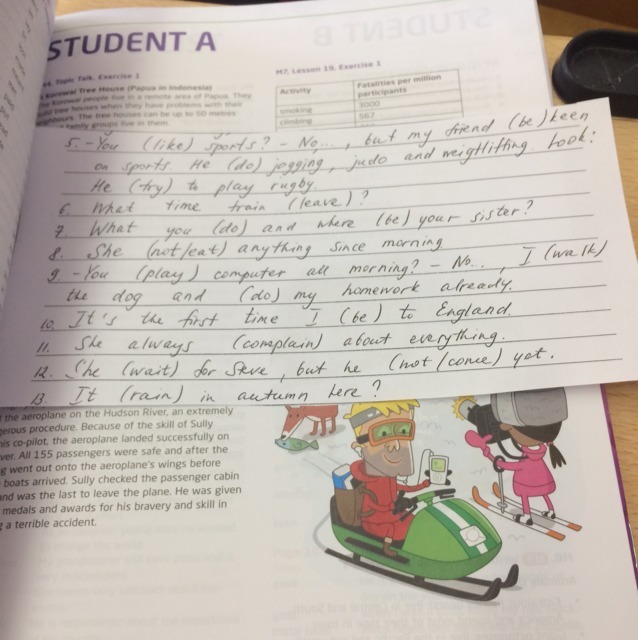 STUDENT A
Topic Talk. Exercise 1
Korowai Tree House (Papua in Indonesia)
Korowai people live in a remote area of Papua. They
tree houses when they have problems with their
The tree houses can be up to 50 metres
family groups live in them.
M7. Lesson 19. Exercise 1
Activity Fatalities per million participants
smoking 3000
climbing 567
5. - You (like) sports? - No..., but my friend (be) keen
on sports. He (do) jogging, judo and weightlifting. Look:
He (try) to play rugby.
6. What time train (leave)?
7. What you (do) and where (be) your sister?
8. She (not/eat) anything since morning
9. - You (play) computer all morning? - No..., I (walk)
the dog and (do) my homework already.
10. It's the first time I (be) to England.
11. She always (complain) about everything.
12. She (wait) for Steve, but he (not/come) yet.
13. It (rain) in autumn here?
the aeroplane on the Hudson River, an extremely
procedure. Because of the skill of Sully
his co-pilot, the aeroplane landed successfully on
All 155 passengers were safe and after the
went out onto the aeroplane's wings before
boats arrived. Sully checked the passenger cabin
and was the last to leave the plane. He was given
medals and awards for his bravery and skill in
a terrible accident.